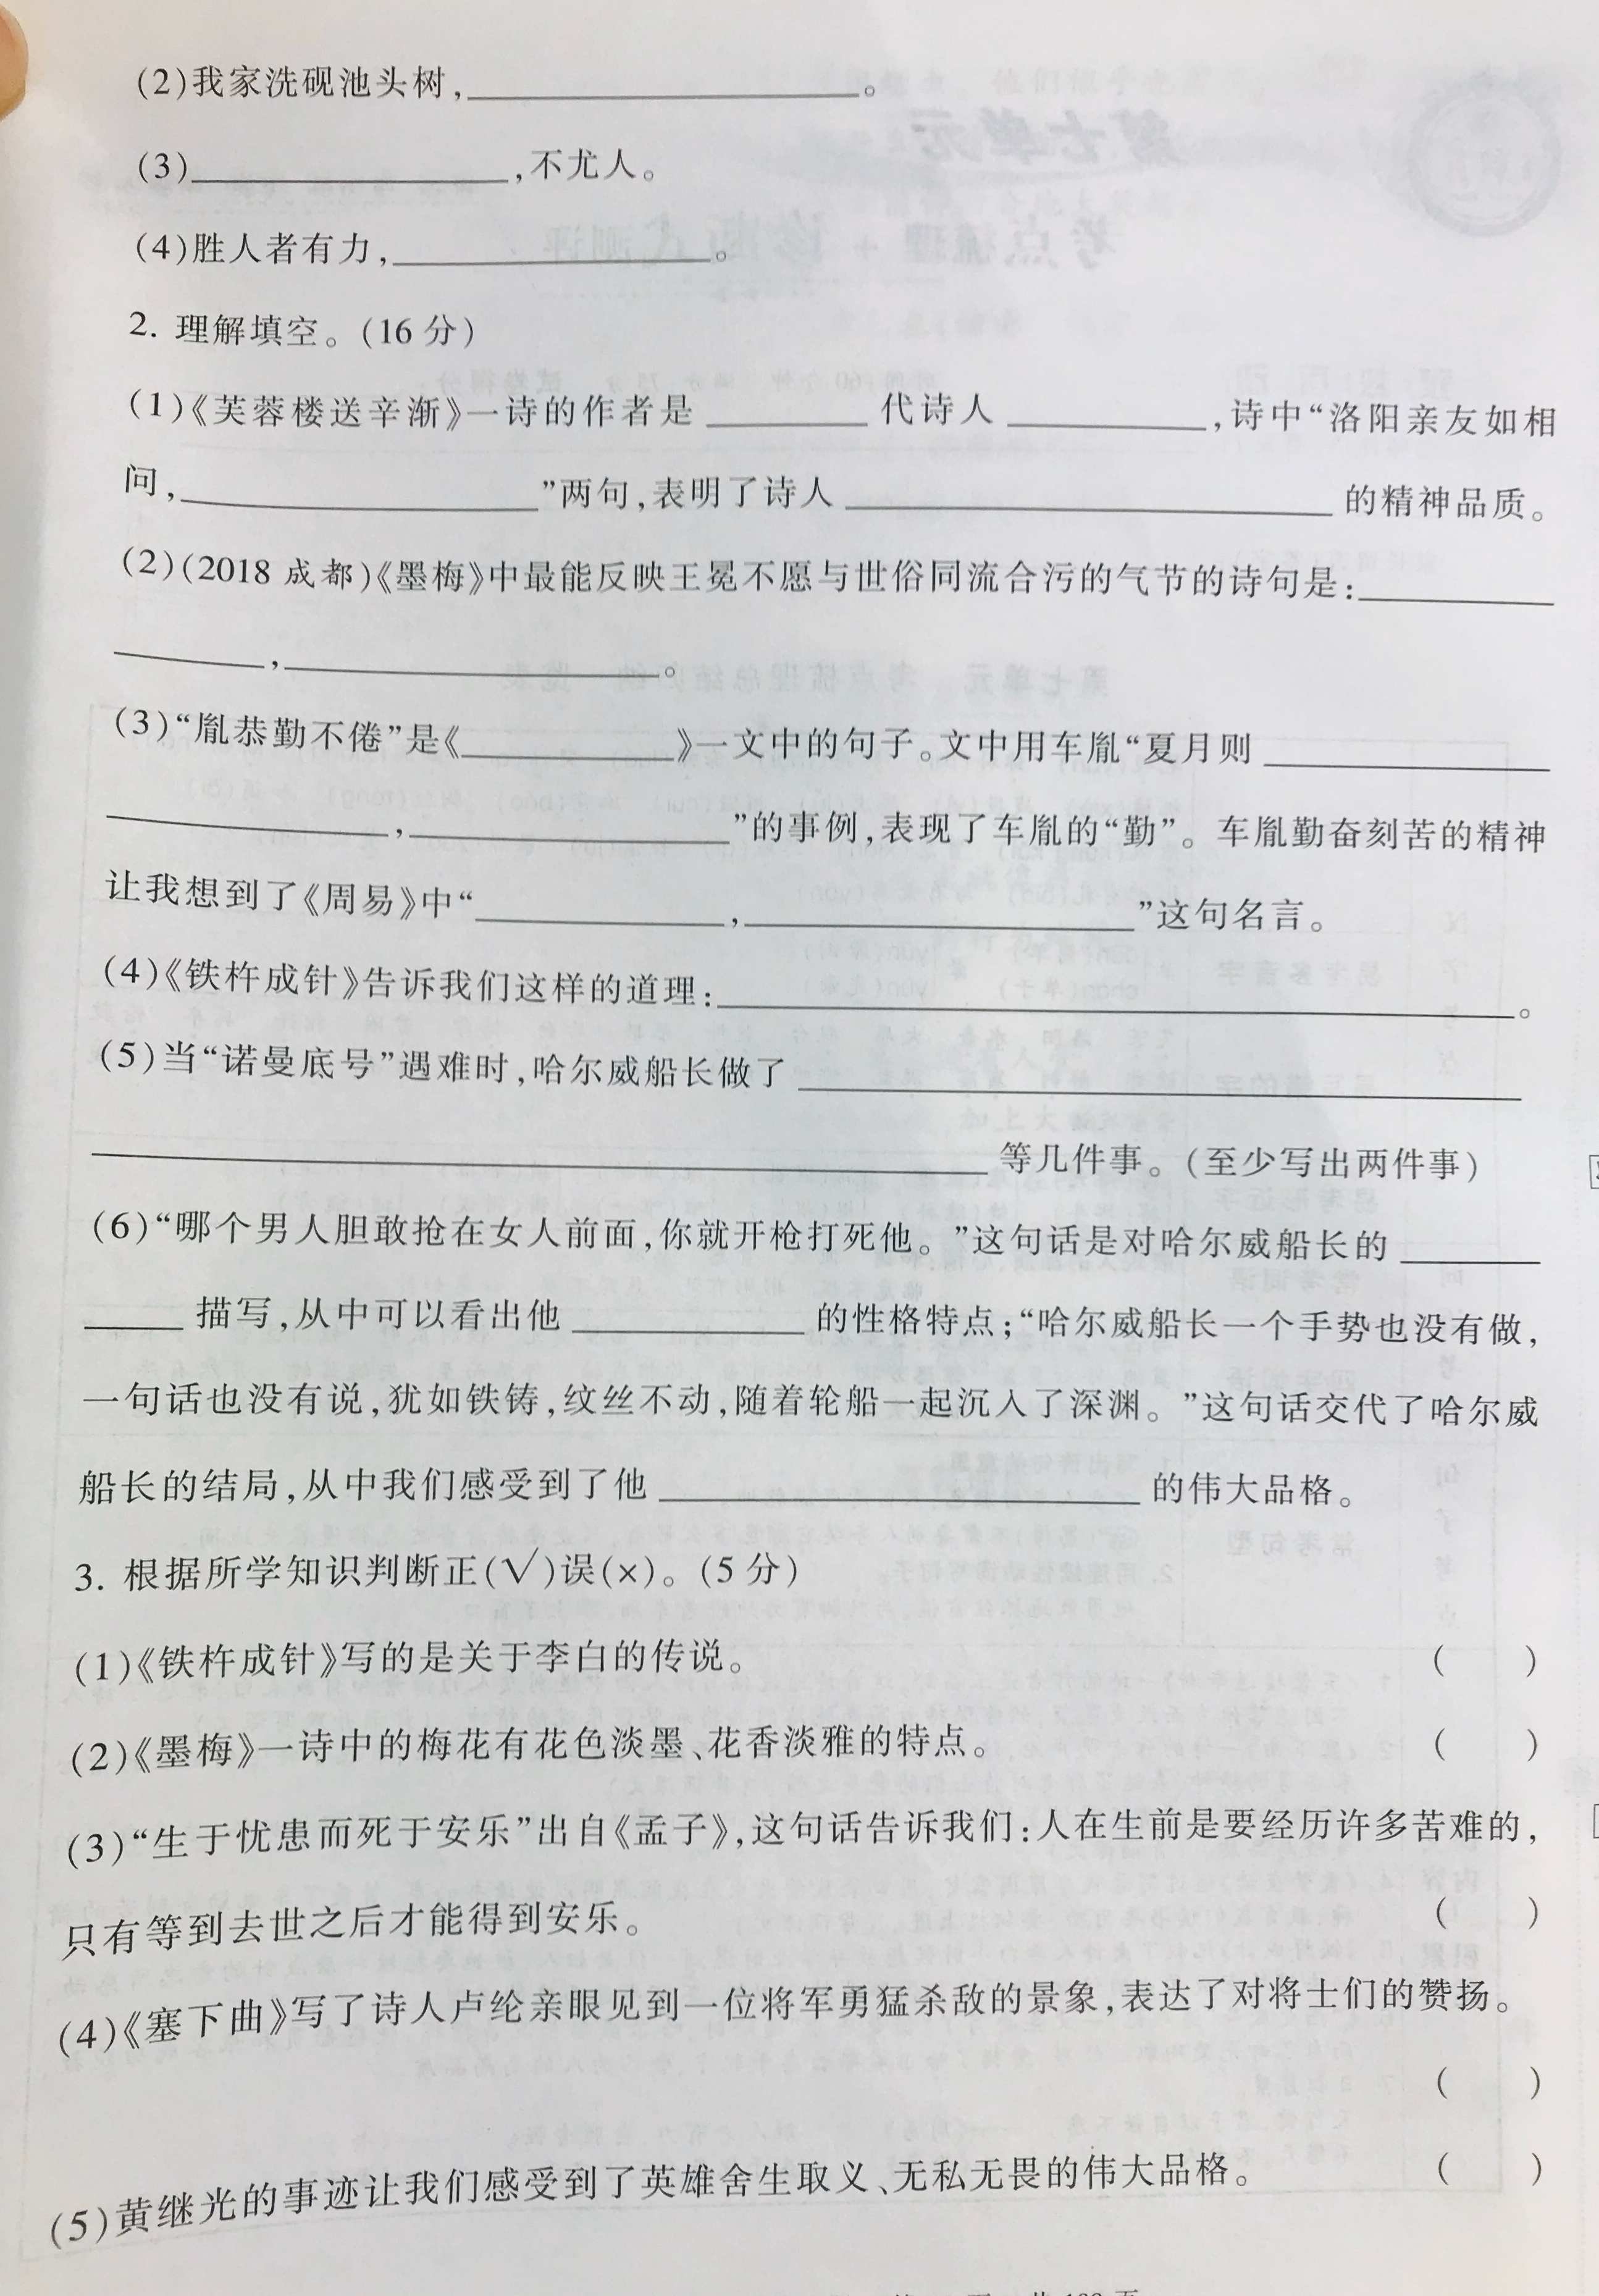 (2)我家洗砚池头树,____________。
(3)____________,不尤人。
(4)胜人者有力,____________。
2. 理解填空。(16 分)
(1)《芙蓉楼送辛渐》一诗的作者是______代诗人______,诗中“洛阳亲友如相
问,____________”两句,表明了诗人____________的精神品质。
(2)(2018 成都)《墨梅》中最能反映王冕不愿与世俗同流合污的气节的诗句是:______
______,____________。
(3)“胤恭勤不倦”是《______》一文中的句子。文中用车胤“夏月则______
______,______”的事例,表现了车胤的“勤”。车胤勤奋刻苦的精神
让我想到了《周易》中“______,____________”这句名言。
(4)《铁杵成针》告诉我们这样的道理:____________。
(5)当“诺曼底号”遇难时,哈尔威船长做了____________
____________等几件事。(至少写出两件事)
(6)“哪个男人胆敢抢在女人前面,你就开枪打死他。”这句话是对哈尔威船长的______
____描写,从中可以看出他______的性格特点;“哈尔威船长一个手势也没有做,
一句话也没有说,犹如铁铸,纹丝不动,随着轮船一起沉入了深渊。”这句话交代了哈尔威
船长的结局,从中我们感受到了他____________的伟大品格。
3. 根据所学知识判断正(√)误(×)。(5 分)
(1)《铁杵成针》写的是关于李白的传说。 ( )
(2)《墨梅》一诗中的梅花有花色淡墨、花香淡雅的特点。 ( )
(3)“生于忧患而死于安乐”出自《孟子》,这句话告诉我们:人在生前是要经历许多苦难的,
只有等到去世之后才能得到安乐。 ( )
(4)《塞下曲》写了诗人卢纶亲眼见到一位将军勇猛杀敌的景象,表达了对将士们的赞扬。
( )
(5)黄继光的事迹让我们感受到了英雄舍生取义、无私无畏的伟大品格。 ( )